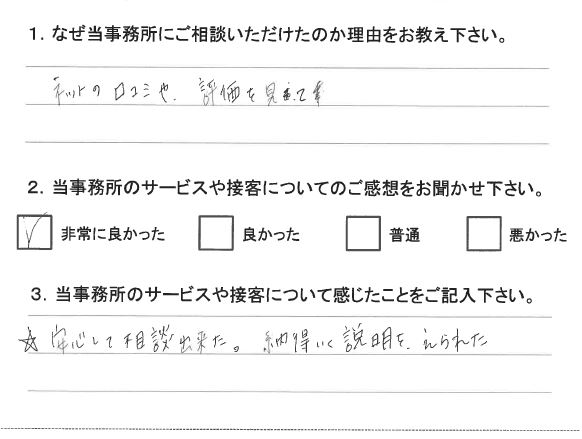 1. なぜ当事務所にご相談いただけたのか理由をお教え下さい。
ネットの口コミや、評価を見て
2. 当事務所のサービスや接客についてのご感想をお聞かせ下さい。
非常に良かった 良かった 普通 悪かった
3. 当事務所のサービスや接客について感じたことをご記入下さい。
☆ 安心して相談出来た。納得いく説明を、えられた